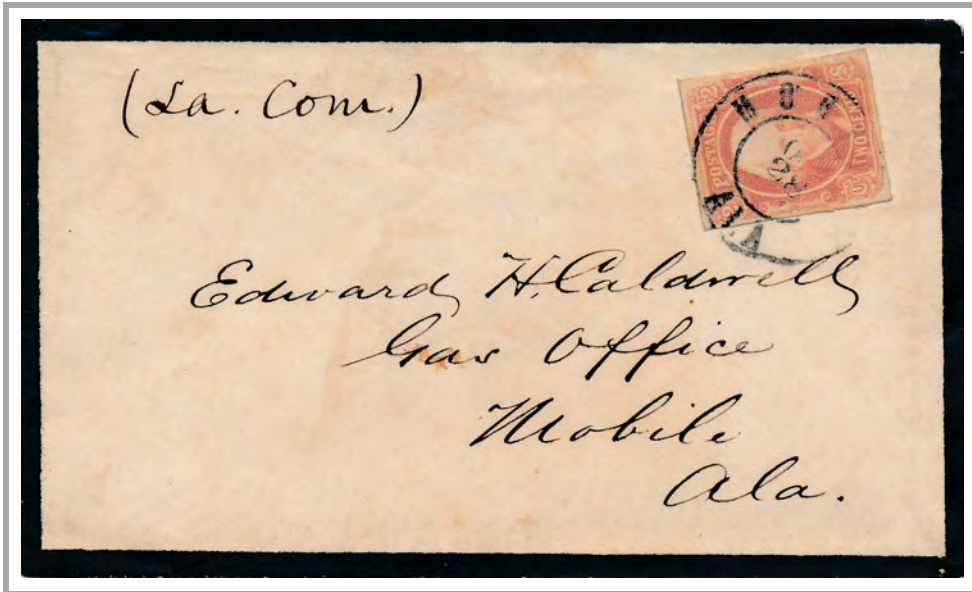 (La. Com.)
POSTAGE
TWO CENTS
Edward H. Caldwell
Gas Office
Mobile
Ala.